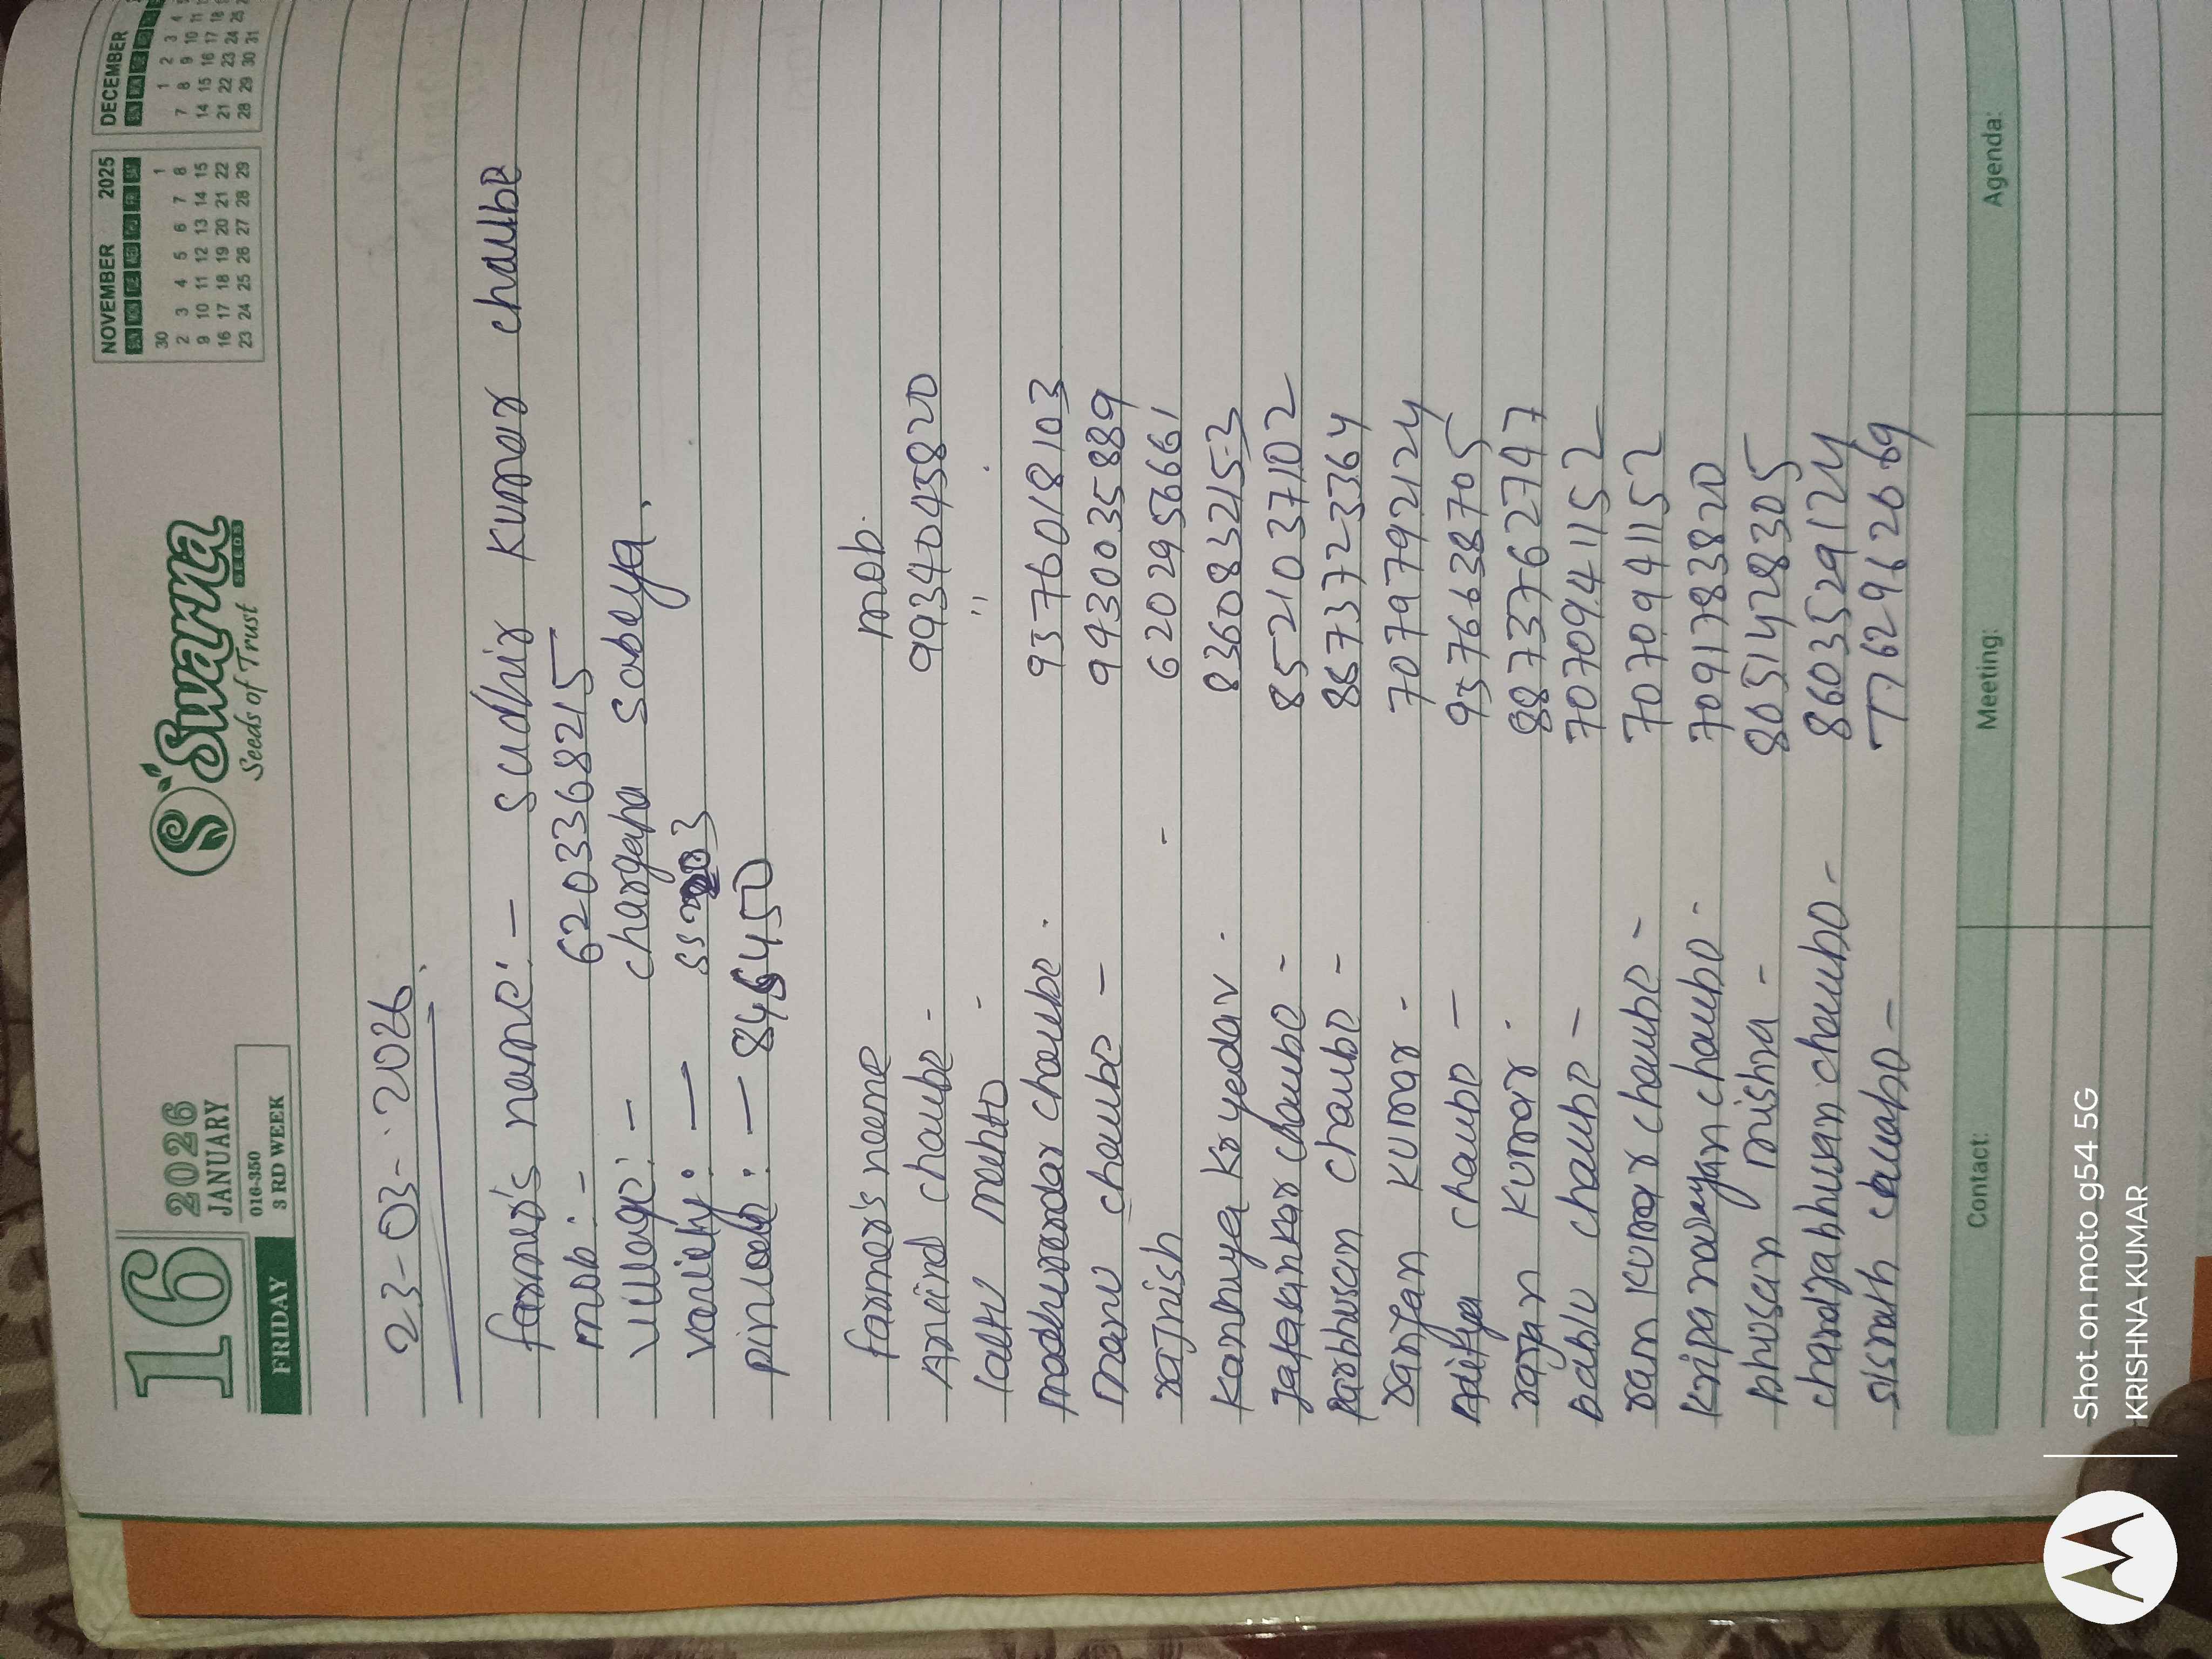 16
2026
JANUARY
FRIDAY
016-350
3 RD WEEK
Swarna
SEEDS
Seeds of Trust
NOVEMBER 2025
SUN MON TUE WED THU FRI SAT
30 1
2 3 4 5 6 7 8
9 10 11 12 13 14 15
16 17 18 19 20 21 22
23 24 25 26 27 28 29
DECEMBER
SUN MON TUE WED
1 2 3 4
7 8 9 10 11
14 15 16 17 18
21 22 23 24 25
28 29 30 31
23-03-2026
farmer's name:- sudhir kumar chaube
mob:- 6203368215
village:- chargaha sobeya.
variety:- 
pincode:- 
farmer's neeme mob.
Arviind chaube- 9934045820
laltu meehto - "
madhurendar chaube. 9376018103
manu chaube - 9430035889
rajnish - 6202956661
Kanhuya Kr yedav. 8360832153
jafasankar chaube- 8521037102
parbhusan chaube- 8573723364
ranjan kumar- 7079792124
Aditya chaube - 9576638705
rajan kumar. 8873762747
bablu chaube - 7070941152
ram kumar chaube- 7070941152
Kripanarayan chaube- 7091783820
bhusan mishra - 8051428305
chandrabhusan chaube- 8603529124
sismath 7762962069
Contact: Meeting: Agenda:
Shot on moto g54 5G
KRISHNA KUMAR